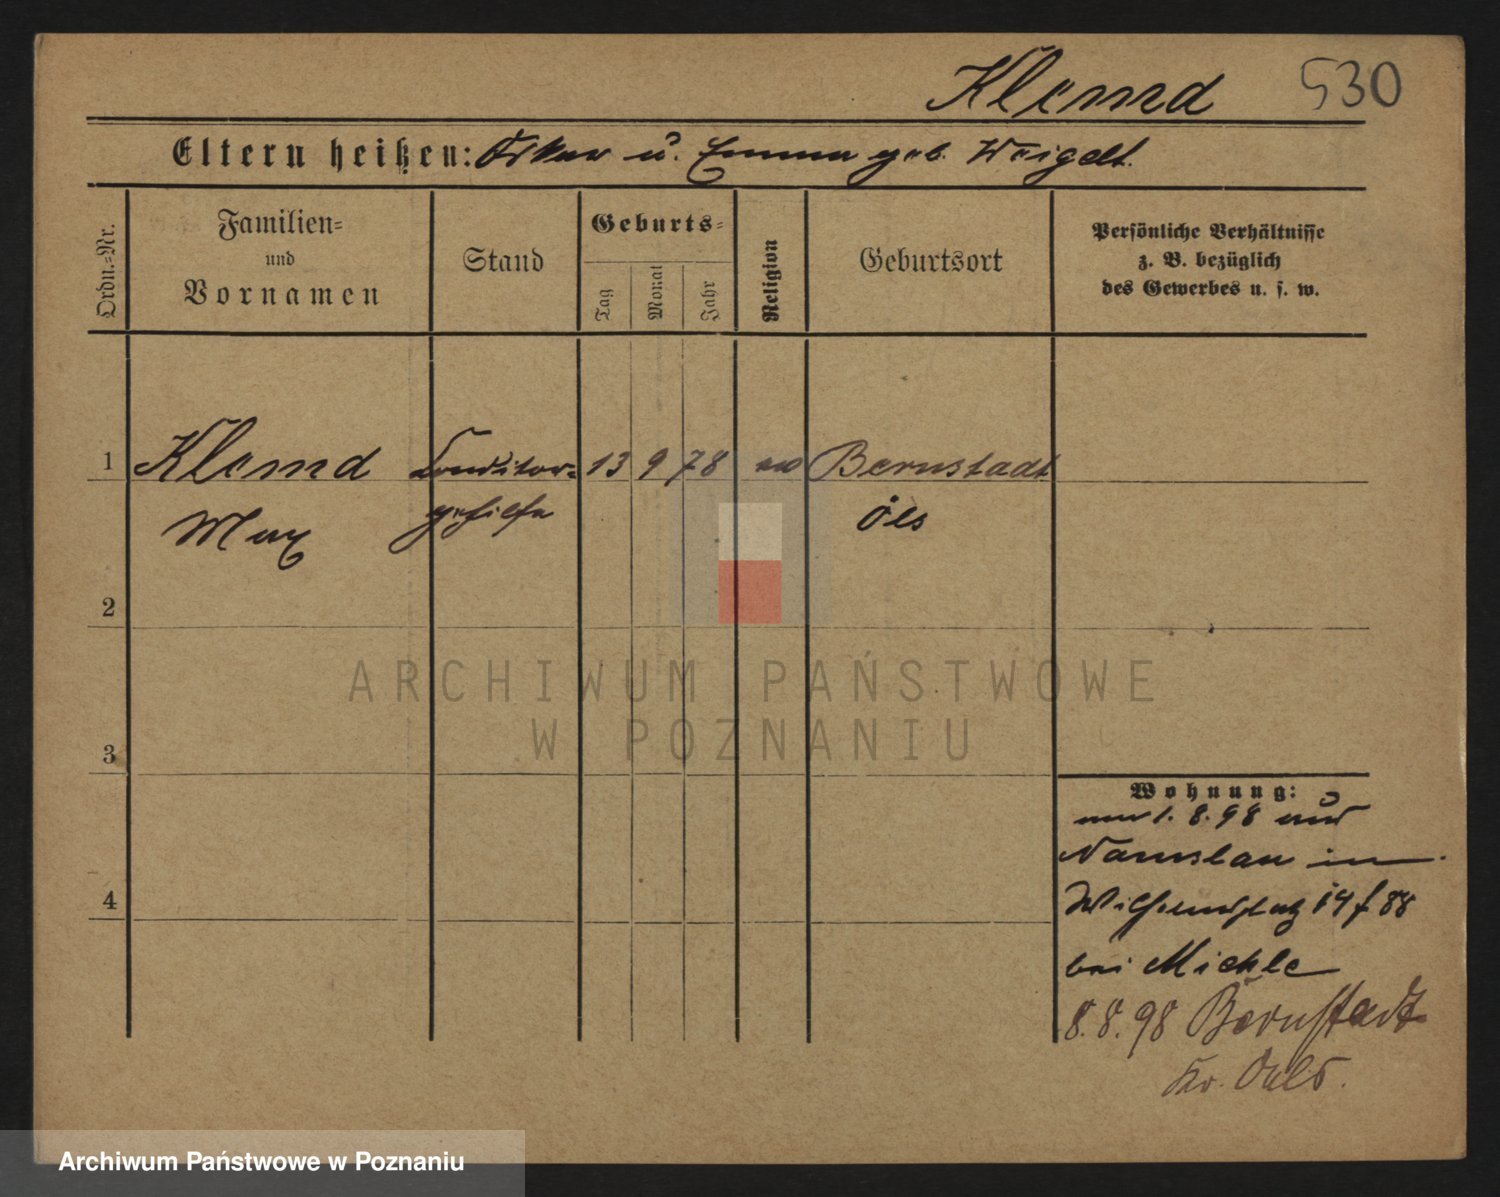 Klemd 530
Eltern heißen: Oskar u. Emma geb. Weigelt.
Ordn.-Nr.
Familien-
und
Vornamen
Stand
Geburts-
Tag
Monat
Jahr
Religion
Geburtsort
Persönliche Verhältnisse
z. B. bezüglich
des Gewerbes u. s. w.
1 Klemd Conditor- 13 9 78 ev Bernstadt
Max gehilfe Öls
2
ARCHIWUM PAŃSTWOWE
W POZNANIU
3
Wohnung:
1. 8. 98 aus
Namslau in
4
Wilhelmsplatz 14 f 88
bei Miehle
8. 8. 98 Bernstadt
Kr. Oels.
Archiwum Państwowe w Poznaniu